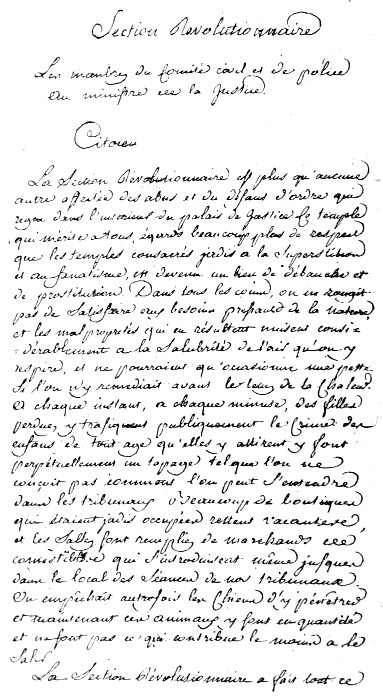 Section Révolutionnaire
Les membres du Comité civil et de police
au ministre de la Justice.
Citoyen
La Section Révolutionnaire est plus qu'aucune
autre affectée des abus et du défaus d'ordre qui
regne dans l'interieur du palais de Justice Ce temple
qui mérite a tous égards beaucoup plus de respect
que les temples consacrés jadis a la Superstition
et au fanatisme, est devenu un lieu de débauche et
de prostitution. Dans tous les coins, on ne rougit
pas de Satisfaire aux besoins pressants de la nature,
et les malpropretés qui en résultent nuisent consi-
=dérablement a la Salubrité de l'air qu'on y
respire, et ne pourraient qu'occasionner une peste
Si l'on n'y remediait avant le tems de la Chaleur.
A chaque instant, a chaque minute, des filles
perdues y trafiquent publiquement le Crime des
enfans de tout age qu'elles y attirent y font
perpétuellement un tapage tel que l'on ne
conçoit pas comment l'on peut S'entendre
dans les tribunaux Beaucoup de boutiques
qui étaient jadis occupées restent vacantes,
et les Salles sont remplies de marchands de
comestibles qui S'introduisent même jusques
dans le local des Séances de nos tribunaux
On empêchait autrefois les Chiens d'y pénétrer
et maintenant ces animaux y sont en quantité
et ne font pas ce qui contribue le moins a le
Salir
La Section Révolutionnaire a fait tout ce